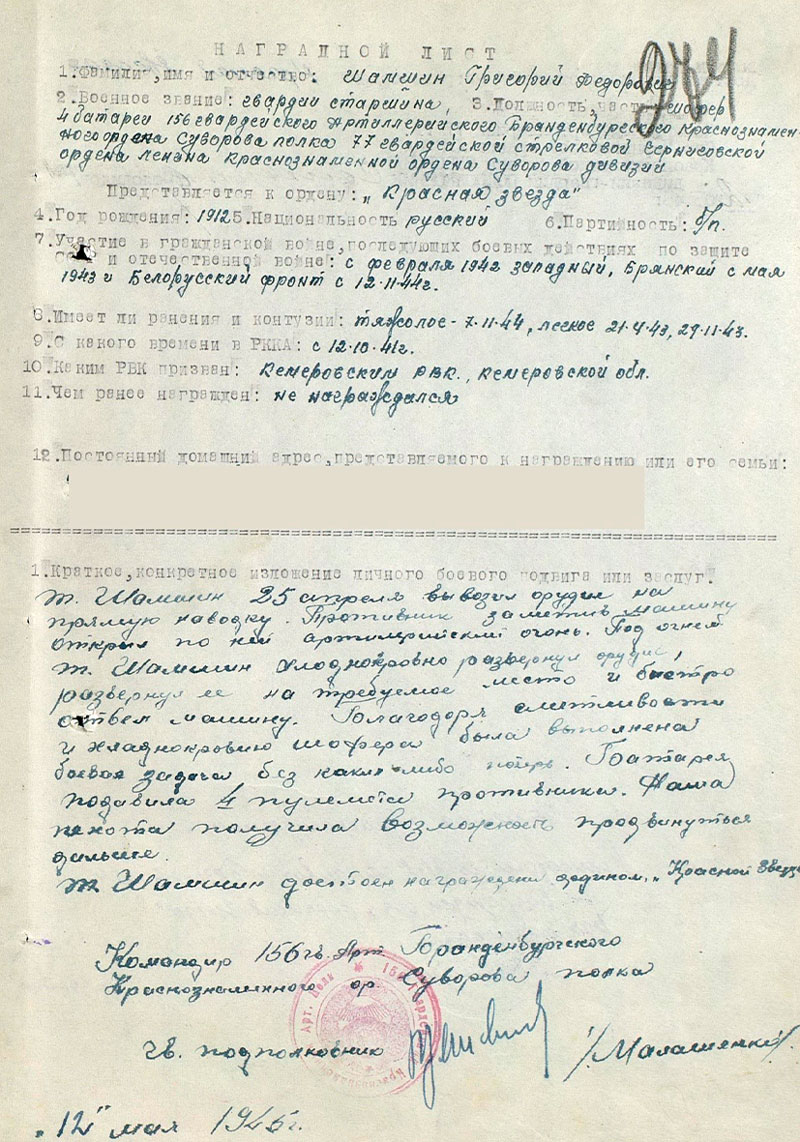 НАГРАДНОЙ ЛИСТ
1.Фамилия,имя и отчество: Шамшин Григорий Федорович
2.Военное звание: гвардии старшина, 3.Должность,часть шофер
4 батареи 156 гвардейского Артиллерийского Бранденбургского Краснознамен-
ного ордена Суворова полка 77 гвардейской стрелковой Черниговской
ордена Ленина Краснознаменной ордена Суворова дивизии
Представляется к ордену: „Красная звезда"
4.Год рождения: 1912 5.Национальность русский 6.Партийность: б/п.
7.Участие в гражданской войне,последующих боевых действиях по защите
СССР и отечественной войне: с февраля 1942 западный, Брянский с мая
1943 и Белорусский фронт с 12.11.44г.
8.Имеет ли ранения и контузии: тяжолое-7.11.44, легкое 21.4.43, 29.11.43.
9.С какого времени в РККА: с 12.10.41г.
10.Каким РВК призван: Кемеровским РВК., Кемеровской обл.
11.Чем ранее награжден: не награждался
12.Постоянный домашний адрес,представляемого к награждению или его семьи:
1.Краткое,конкретное изложение личного боевого подвига или заслуг.
т. Шамшин 25 апреля вывозил орудие на
прямую наводку. Противник заметив машину
открыл по ней артиллерийский огонь. Под огнем
т. Шамшин хладнокровно развернул орудие,
развернул ее на требуемое место и быстро
отвел машину. Благодоря сметливости
и хладнокровию шофера была выполнена
боевая задача без каких-либо потерь. Батарея
подавила 4 пулемета противника. Наша
пехота получила возможность продвинуться
дальше.
т. Шамшин достоен награждения орденом „Красной Звезды
Командир 156 гв. Арт. Бранденбургского
Краснознаменного ор Суворова полка
гв. подполковник /Малашенко/
„12" мая 1945г.
274